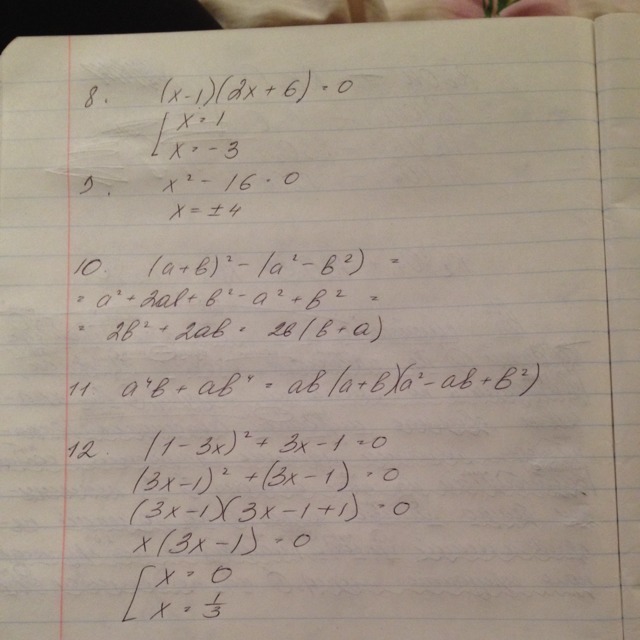 8. (x-1)(2x+6)=0
[x=1
x=-3
9. x²-16=0
x=±4
10. (a+b)²-(a²-b²) =
= a²+2ab+b²-a²+b² =
= 2b²+2ab = 2b(b+a)
11 a⁴b+ab⁴ = ab(a+b)(a²-ab+b²)
12. (1-3x)²+3x-1=0
(3x-1)²+(3x-1)=0
(3x-1)(3x-1+1)=0
x(3x-1)=0
[x=0
x=1/3